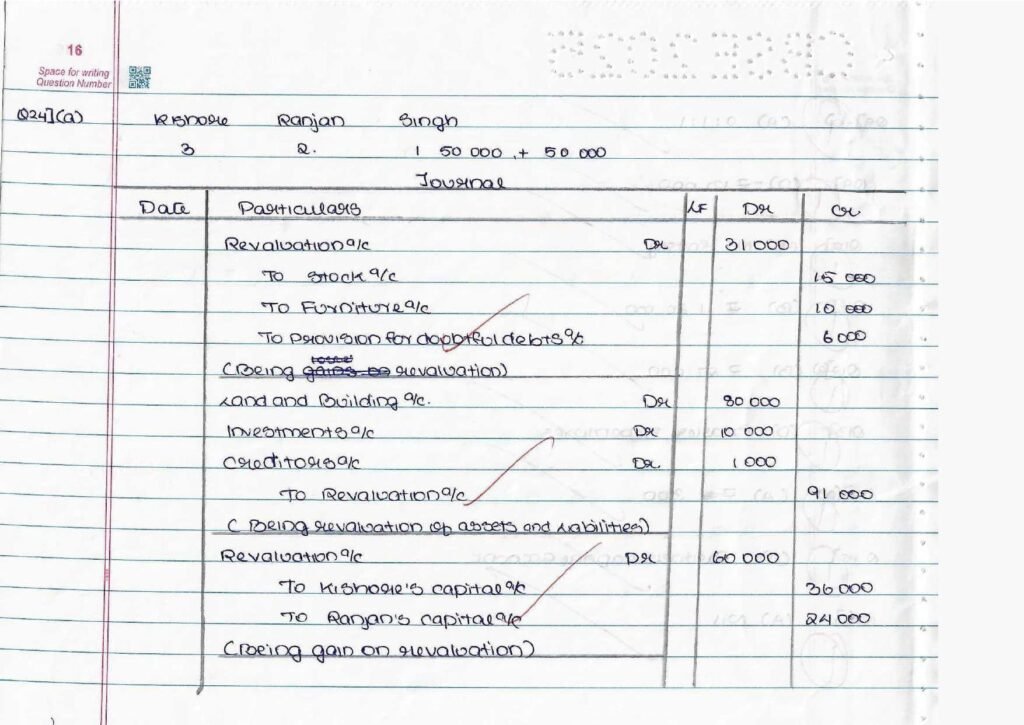 16
Space for writing
Question Number
Q24](a) Kishore Ranjan Singh
3 2. 1 50 000 + 50 000
Journal
Date Particulars LF Dr Cr
Revaluation a/c Dr 31 000
To Stock a/c 15 000
To Furniture a/c 10 000
To Provision for doubtful debts a/c 6 000
(Being revaluation)
Land and Building a/c. Dr 80 000
Investments a/c Dr 10 000
Creditors a/c Dr 1 000
To Revaluation a/c 91 000
(Being revaluation of assets and liabilities)
Revaluation a/c Dr 60 000
To Kishore's capital a/c 36 000
To Ranjan's capital a/c 24 000
(Being gain on revaluation)